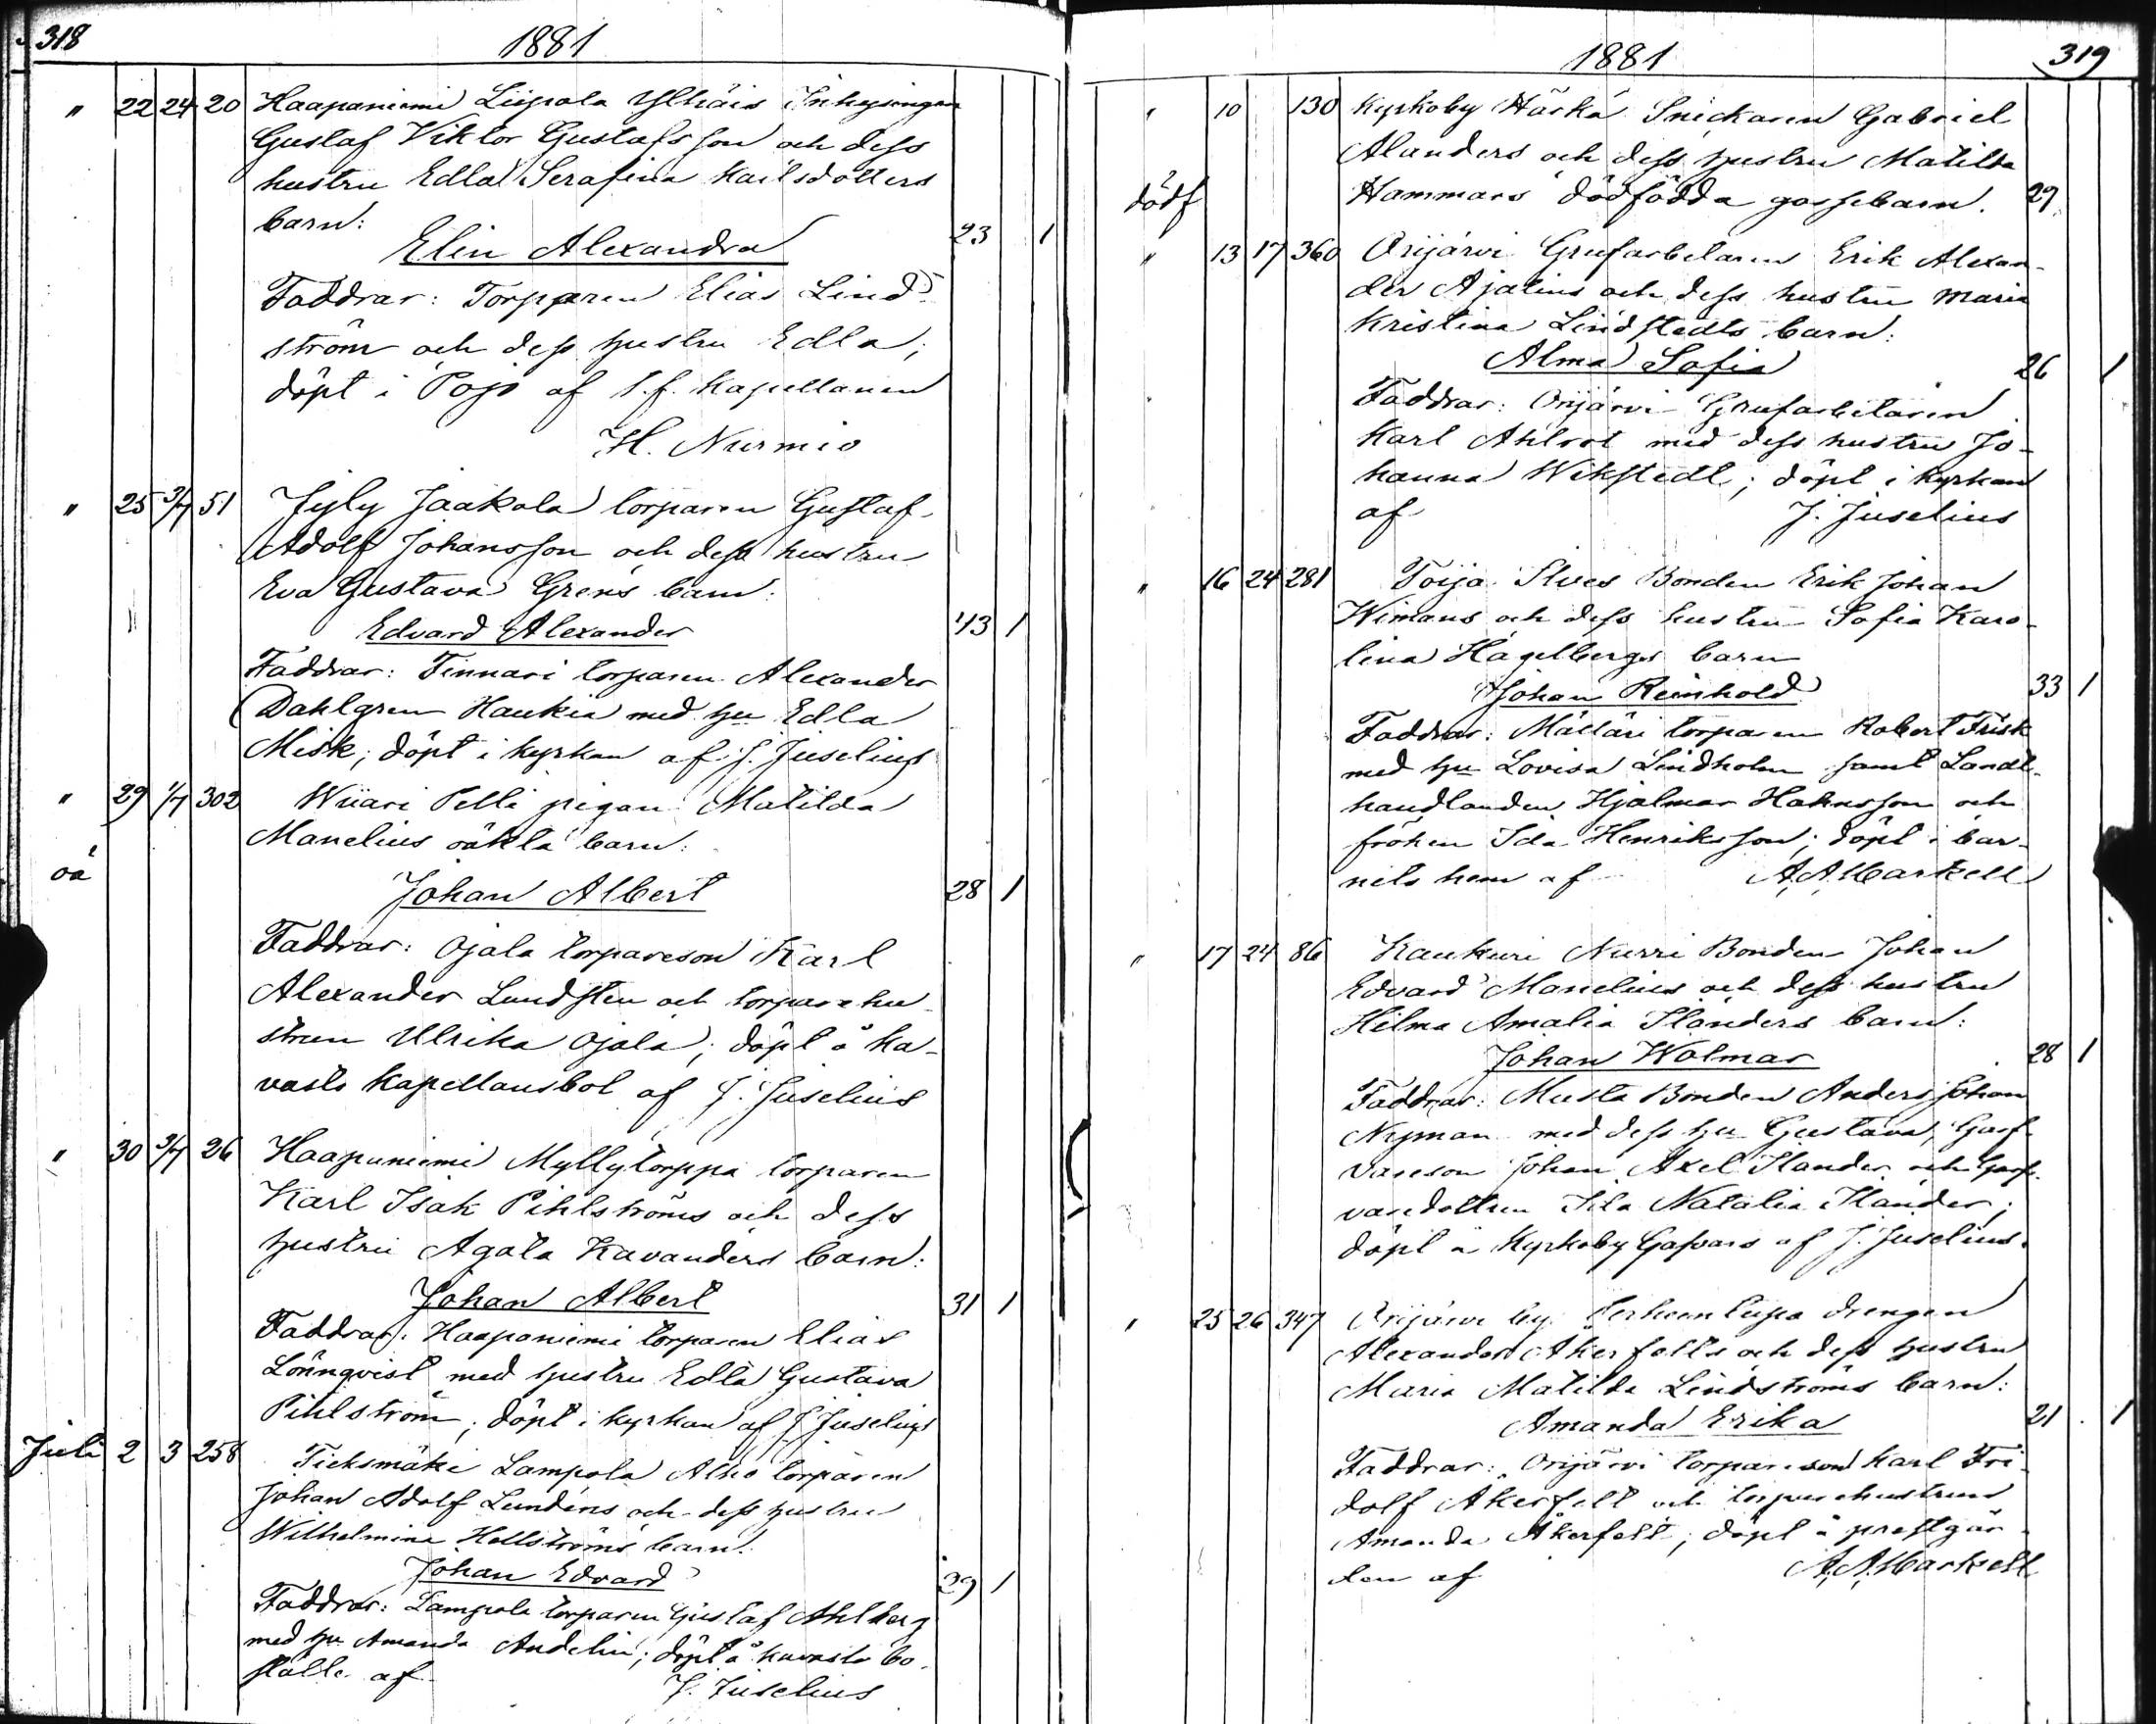 318
1881
" 22 24 20 Haapaniemi Liipola Ylhäis Inhysingen
Gustaf Viktor Gustafsson och dess
hustru Edla Serafina Karlsdotters
barn:
Elin Alexandra 23 1
Faddrar: Torparen Elias Lind-
ström och dess hustru Edla;
döpt i Pojo af t.f. Kapellanen
H. Nurmio
" 25 3/7 51 Jyly Jaakola torparen Gustaf
Adolf Johansson och dess hustru
Eva Gustava Grens barn:
Edvard Alexander 43 1
Faddrar: Finnari torparen Alexander
Dahlgren Haukia med hu Edla
Misk; döpt i kyrkan af J. Juselius
" 29 1/7 302 Wiiari Pelli pigan Matilda
Manelius oäkta barn:
oä
Johan Albert 28 1
Faddrar: Ojala torpareson Karl
Alexander Lundsten och torparehu-
strun Ulrika Ojala; döpt å Ka-
vasto Kapellansbol af J. Juselius
" 30 3/7 26 Haapaniemi Myllytorppa torparen
Karl Isak Pihlströms och dess
hustru Agata Kavanders barn:
Johan Albert 31 1
Faddrar: Haapaniemi torparen Elias
Lönnqvist med hustru Edla Gustava
Pihlström; döpt i kyrkan af J. Juselius
Juli 2 3 258 Lampola Alho torparen
Johan Adolf Lundéns och dess hustru
Wilhelmina Hellströms barn:
Johan Edvard 39 1
Faddrar: Lampola torparen Gustaf Ahlberg
med hu Amanda Andelin; döpt å Kavasto bo-
ställe af J. Juselius
1881
319
" 10 130 Kyrkoby Härkä Snickaren Gabriel
Alanders och dess hustru Matilda
dödf Hammars dödfödda gossebarn. 29
" 13 17 360 Orijärvi Grufarbetaren Erik Alexan-
der Ajalins och dess hustru Maria
Kristina Lindstedts barn:
Alma Sofia 26 1
Faddrar: Orijärvi Grufarbetaren
Karl Ahlrot med dess hustru Jo-
hanna Wikstedt; döpt i kyrkan
af J. Juselius
" 16 24 281 Toija Ilves Bonden Erik Johan
Wimans och dess hustru Sofia Karo-
lina Hagelbergs barn
Johan Reinhold 33 1
Faddrar: Mälläri torparen Robert Frisk
med hu Lovisa Lindholm samt Landt-
handlanden Hjalmar Hakansson och
fröken Ida Henriksson; döpt i bar-
nets hem af A. A. Markell
" 17 24 86 Kaukuri Nurri Bonden Johan
Edvard Manelius och dess hustru
Hilma Amalia Ilanders barn:
Johan Wolmar 28 1
Faddrar: Musta Bonden Anders Johan
Nyman med dess hu Gustava, Garf-
vareson Johan Axel Ilander och Garf-
varedottren Ida Natalia Ilander;
döpt å Kyrkoby Gafvars af J. Juselius.
" 25 26 347 Orijärvi by drengen
Alexander Åkerfelts och dess hustru
Maria Matilda Lindströms barn:
Amanda Erika 21 1
Faddrar: Orijärvi torpareson Karl Fri-
dolf Åkerfelt och torparehustrun
Amanda Åkerfelt; döpt å prestgår-
den af A. A. Markell